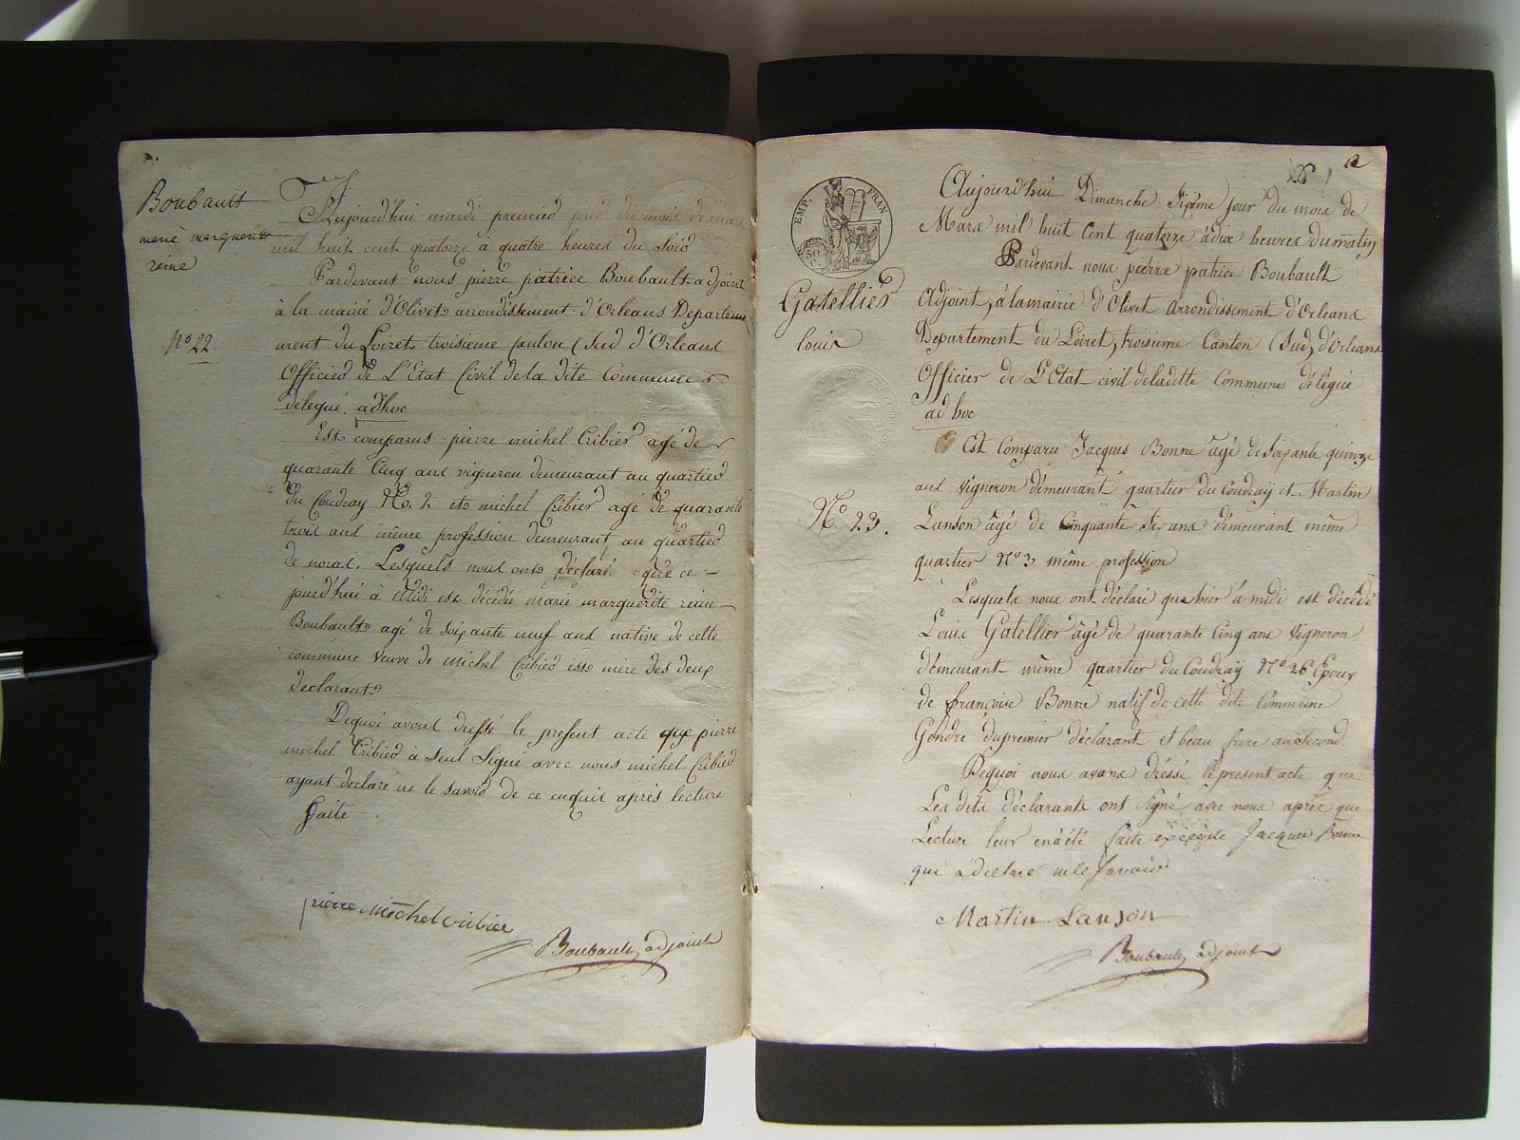 Boubault
marie marguerite
reine
No 22
Aujourd'hui mardi premier jour du mois de mars
mil huit cent quatorze à quatre heures du soir
Pardevant nous pierre patrice Boubault adjoint
à la mairie d'Olivet arrondissement d'Orleans Departem
ment du Loiret troisieme (Sud d'Orleans
Officier de L'Etat Civil de la dite Commune
delegué. adhoc
Est comparus pierre michel Cribier agé de
quarante Cinq ans vigneron demeurant au quartier
du Coudray No. 2 et michel Cribier agé de quarante
trois ans même profession demeurant au quartier
de . Lesquels nous ont déclaré que ce
jourd'hui à Midi est décédée marie marguerite reine
Boubault agé de soixante neuf ans native de cette
commune veuve de michel Cribier mère des deux
declarant
Dequoi avons dressé le present acte que pierre
michel Cribier à seul Signé avec nous michel Cribier
ayant declaré ne le savoir de ce enquis après lecture
faite
pierre michel cribier
Boubault adjoint
EMP. FRAN
50
C.
Gatellier
louis
No 23.
2
Aujourd'hui Dimanche Sixième Jour du mois de
Mars mil huit Cent quatorze à dix heures du matin
Pardevant nous pierre patrice Boubault
Adjoint, à la mairie d'Olivet Arrondissement d'Orleans
Departement du Loiret, troisieme Canton (Sud) d'Orleans
Officier de L'Etat civil de ladette Commune délégué
ad hoc
Est Comparu Jacques Bonne âgé de soixante quinze
ans Vigneron démeurant quartier du Coudray et Martin
Lanson âgé de Cinquante Six ans démeurant même
quartier No 3 même profession
Lesquels nous ont déclaré que hier à midi est décédé
Louis Gatellier âgé de quarante Cinq ans Vigneron
démeurant même quartier du Coudray No 26 Epoux
de françoise Bonne natif de cette dite Commune
Gendre du premier déclarant et beau frere au Second
Dequoi nous avons dressé le present acte que
Les dits déclarants ont Signé avec nous après que
Lecture leur en a été faite excepté Jacques Bonne
qui a déclaré ne le savoir
Martin Lanson
Boubault adjoint